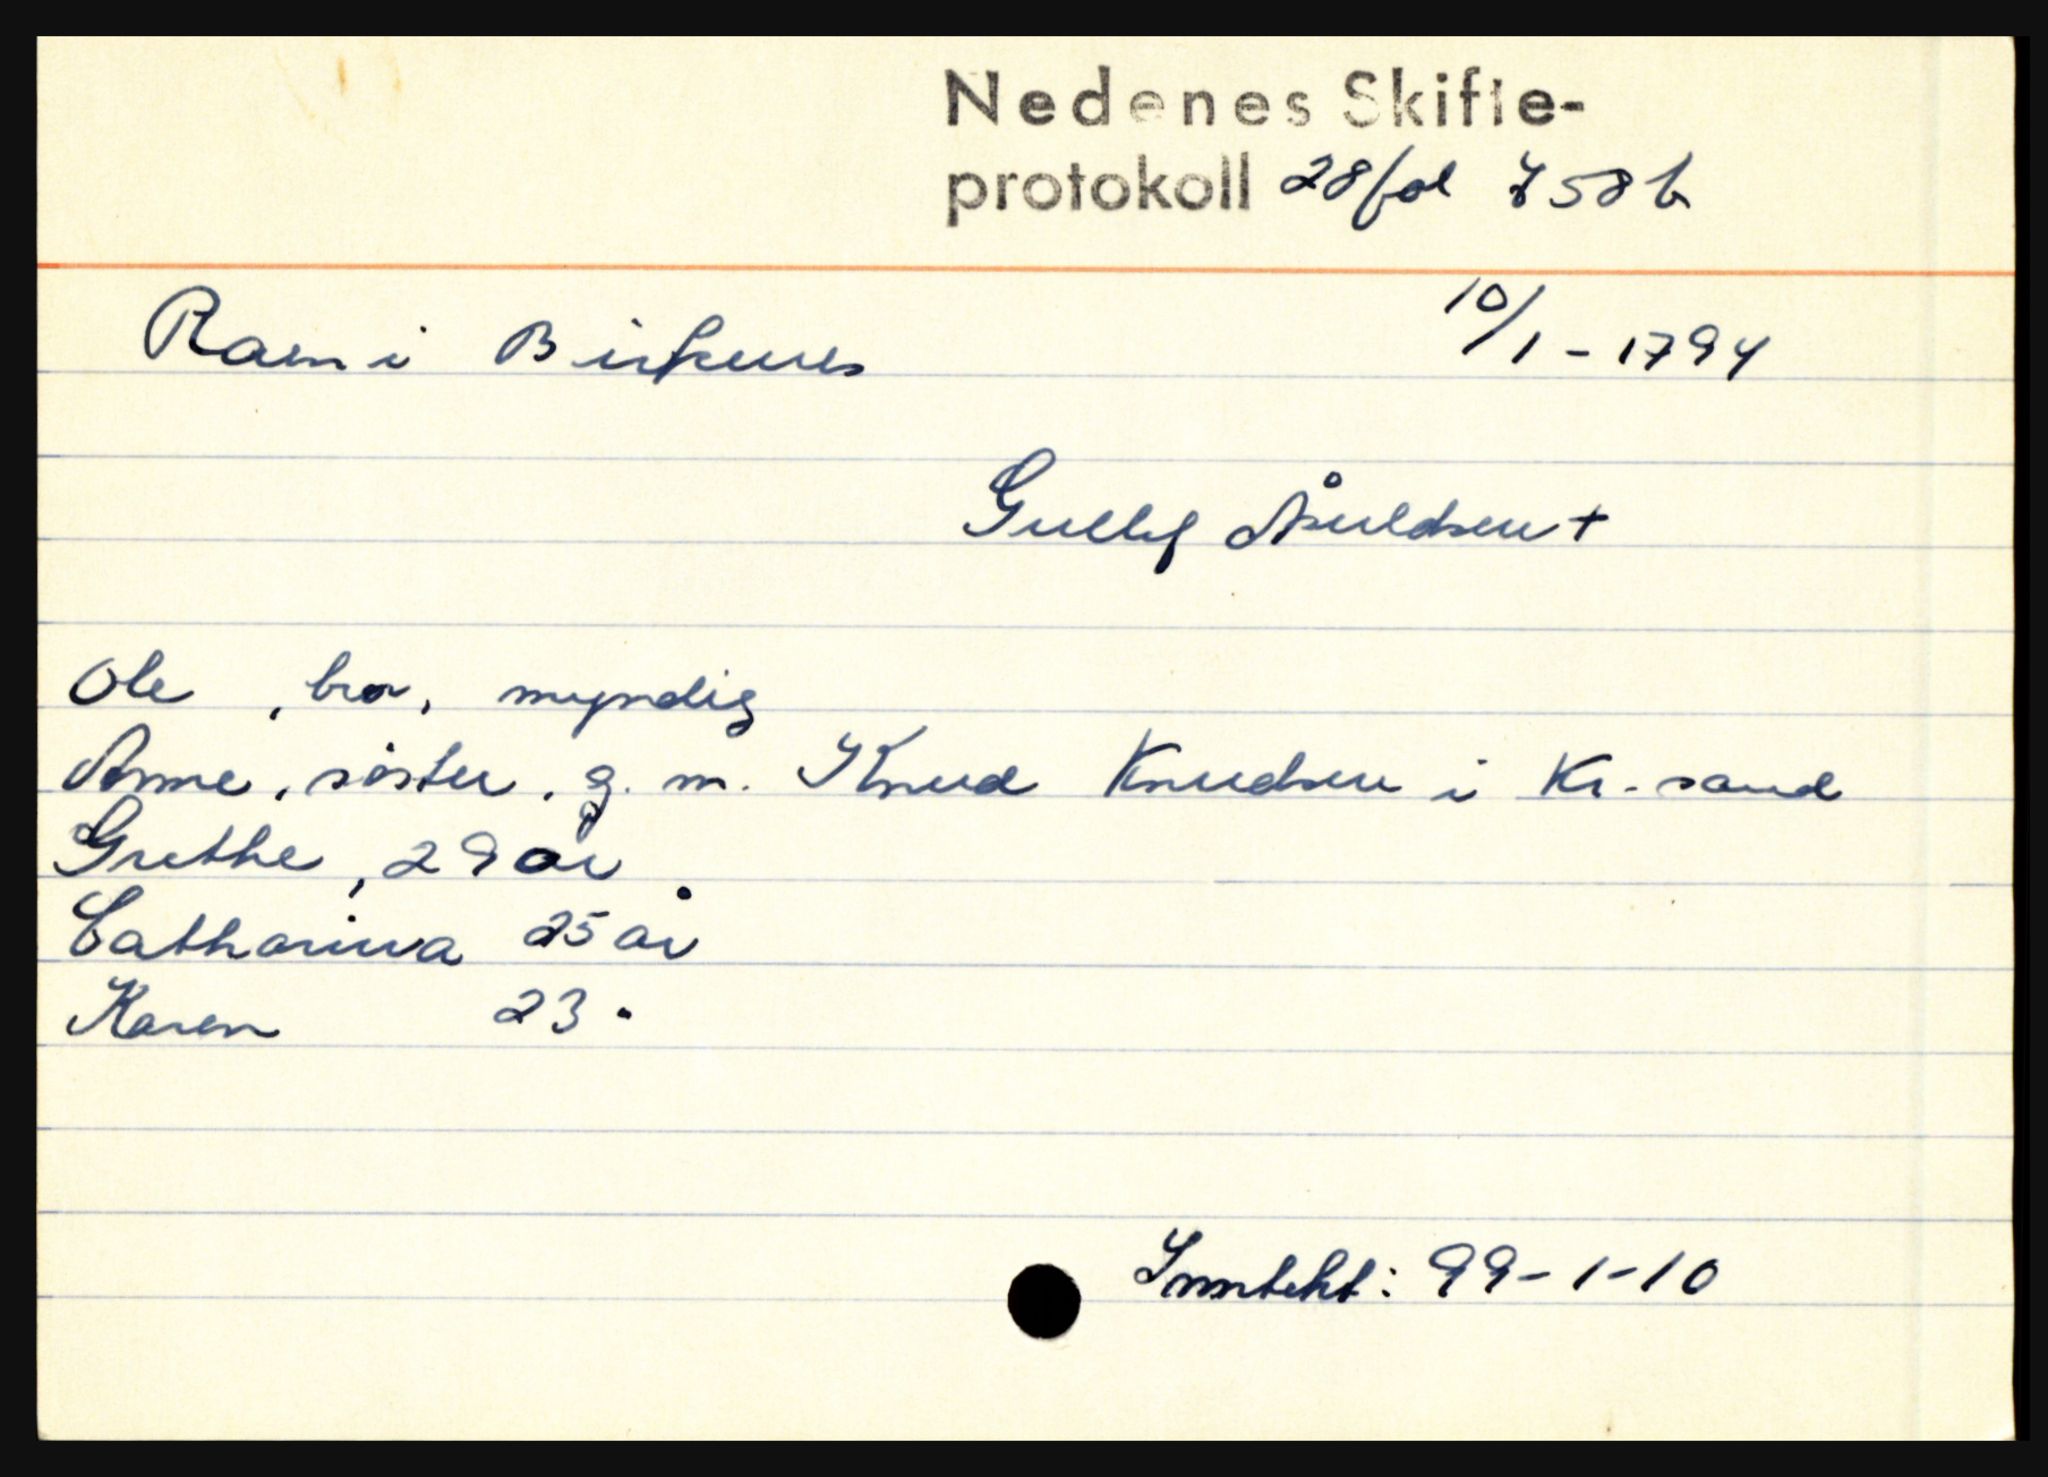 Nedenes Skifte-
protokoll 28 fol 758 b
Raen i Birkenes 10/1 - 1794
Gullef Åsuldsen +
Ole , bror, myndig
Anne , söster , g. m. Knud Knudsen i Kr. sand
Grethe , 29 år
Catharina 25 år
Karen 23 "
Inntekt : 99 - 1 - 10